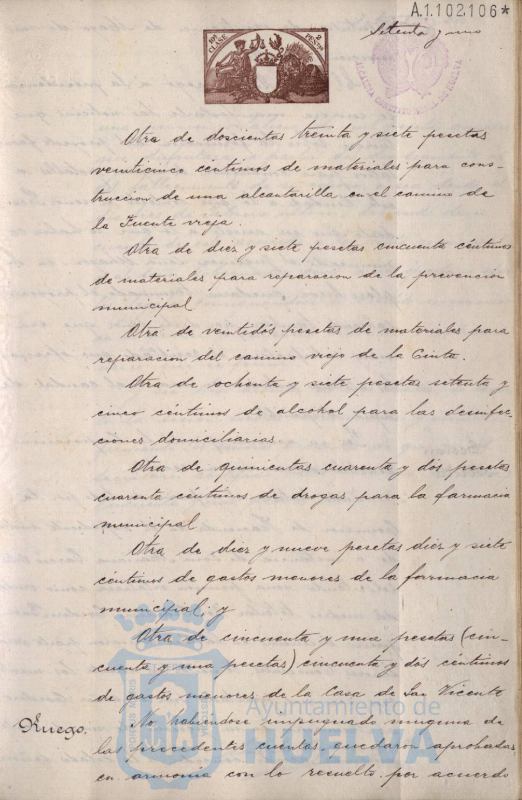 A.1.102,106*
Setenta y uno
10ª CLASE
2 PESTAS
ALCALDIA CONSTITUCIONAL DE HUELVA
Otra de doscientas treinta y siete pesetas
veinticinco céntimos de materiales para cons-
truccion de una alcantarilla en el camino de
la Fuente vieja.
Otra de diez y siete pesetas cincuenta céntimos
de materiales para reparacion de la prevencion
municipal
Otra de veintidós pesetas de materiales para
reparacion del camino viejo de la Cinta.
Otra de ochenta y siete pesetas setenta y
cinco céntimos de alcohol para las desinfec-
ciones domiciliarias.
Otra de quinientas cuarenta y dós pesetas
cuarenta céntimos de drogas para la farmacia
municipal
Otra de diez y nueve pesetas diez y siete
céntimos de gastos menores de la farmacia
municipal; y
Otra de cincuenta y una pesetas (cin-
cuenta y una pesetas) cincuenta y dós céntimos
de gastos menores de la Casa de San Vicente
Ruego.
No habiendose impugnado ninguna de
las precedentes cuentas, quedaron aprobadas
en armonia con lo resuelto por acuerdo
Ayuntamiento de
HUELVA